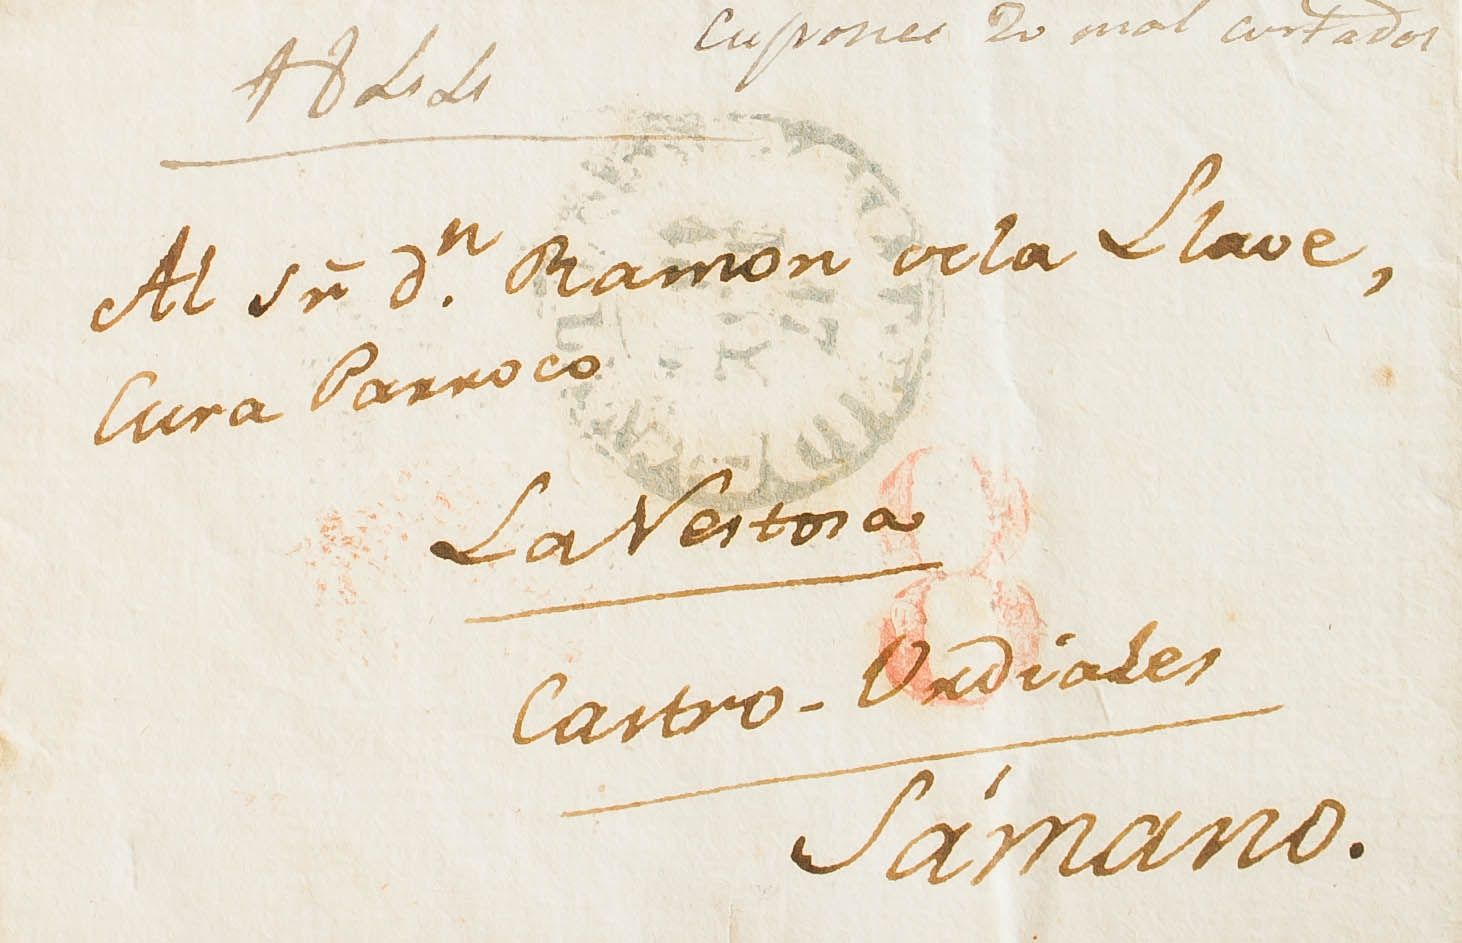 Cupones 20 mal cortados
Al Sr. Dn. Ramon dela Llave,
Cura Parroco
La Nestosa
Castro-Urdiales
Sámano.
8